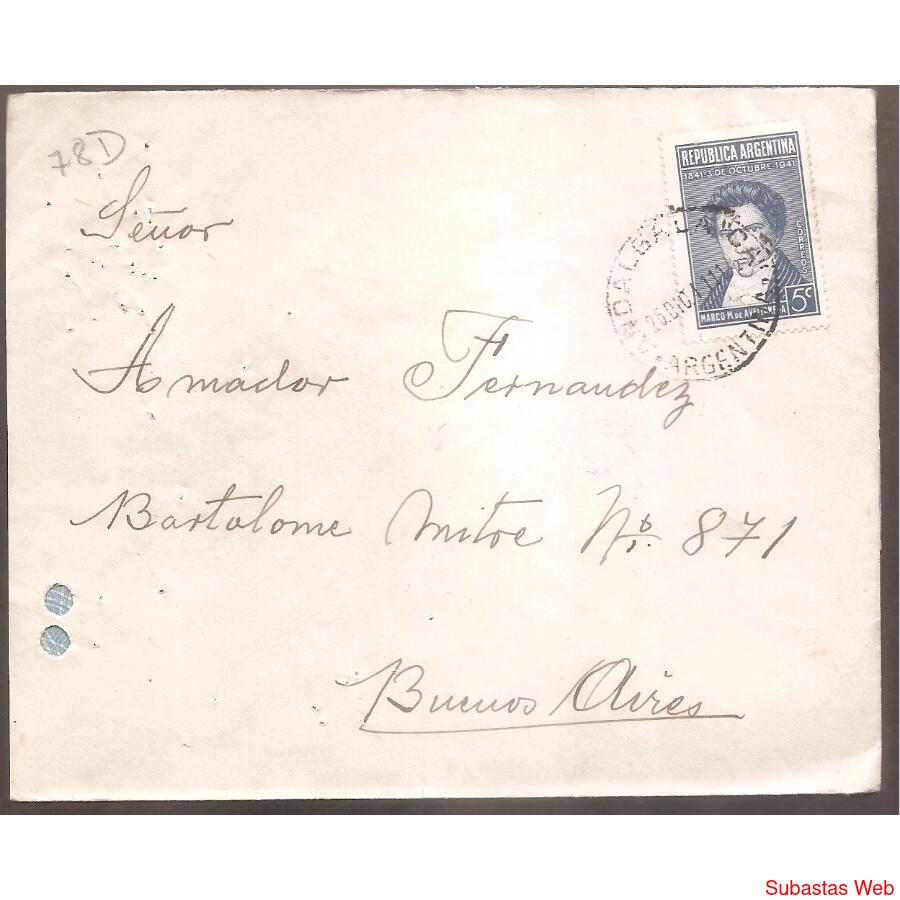 78D
REPUBLICA ARGENTINA
1841·3 DE OCTUBRE·1941
CORREOS
MARCO M. DE AVELLANEDA
5c
ANDALGALA
ARGENTINA
Señor
Amador Fernandez
Bartolome Mitre No. 871
Buenos Aires
Subastas Web